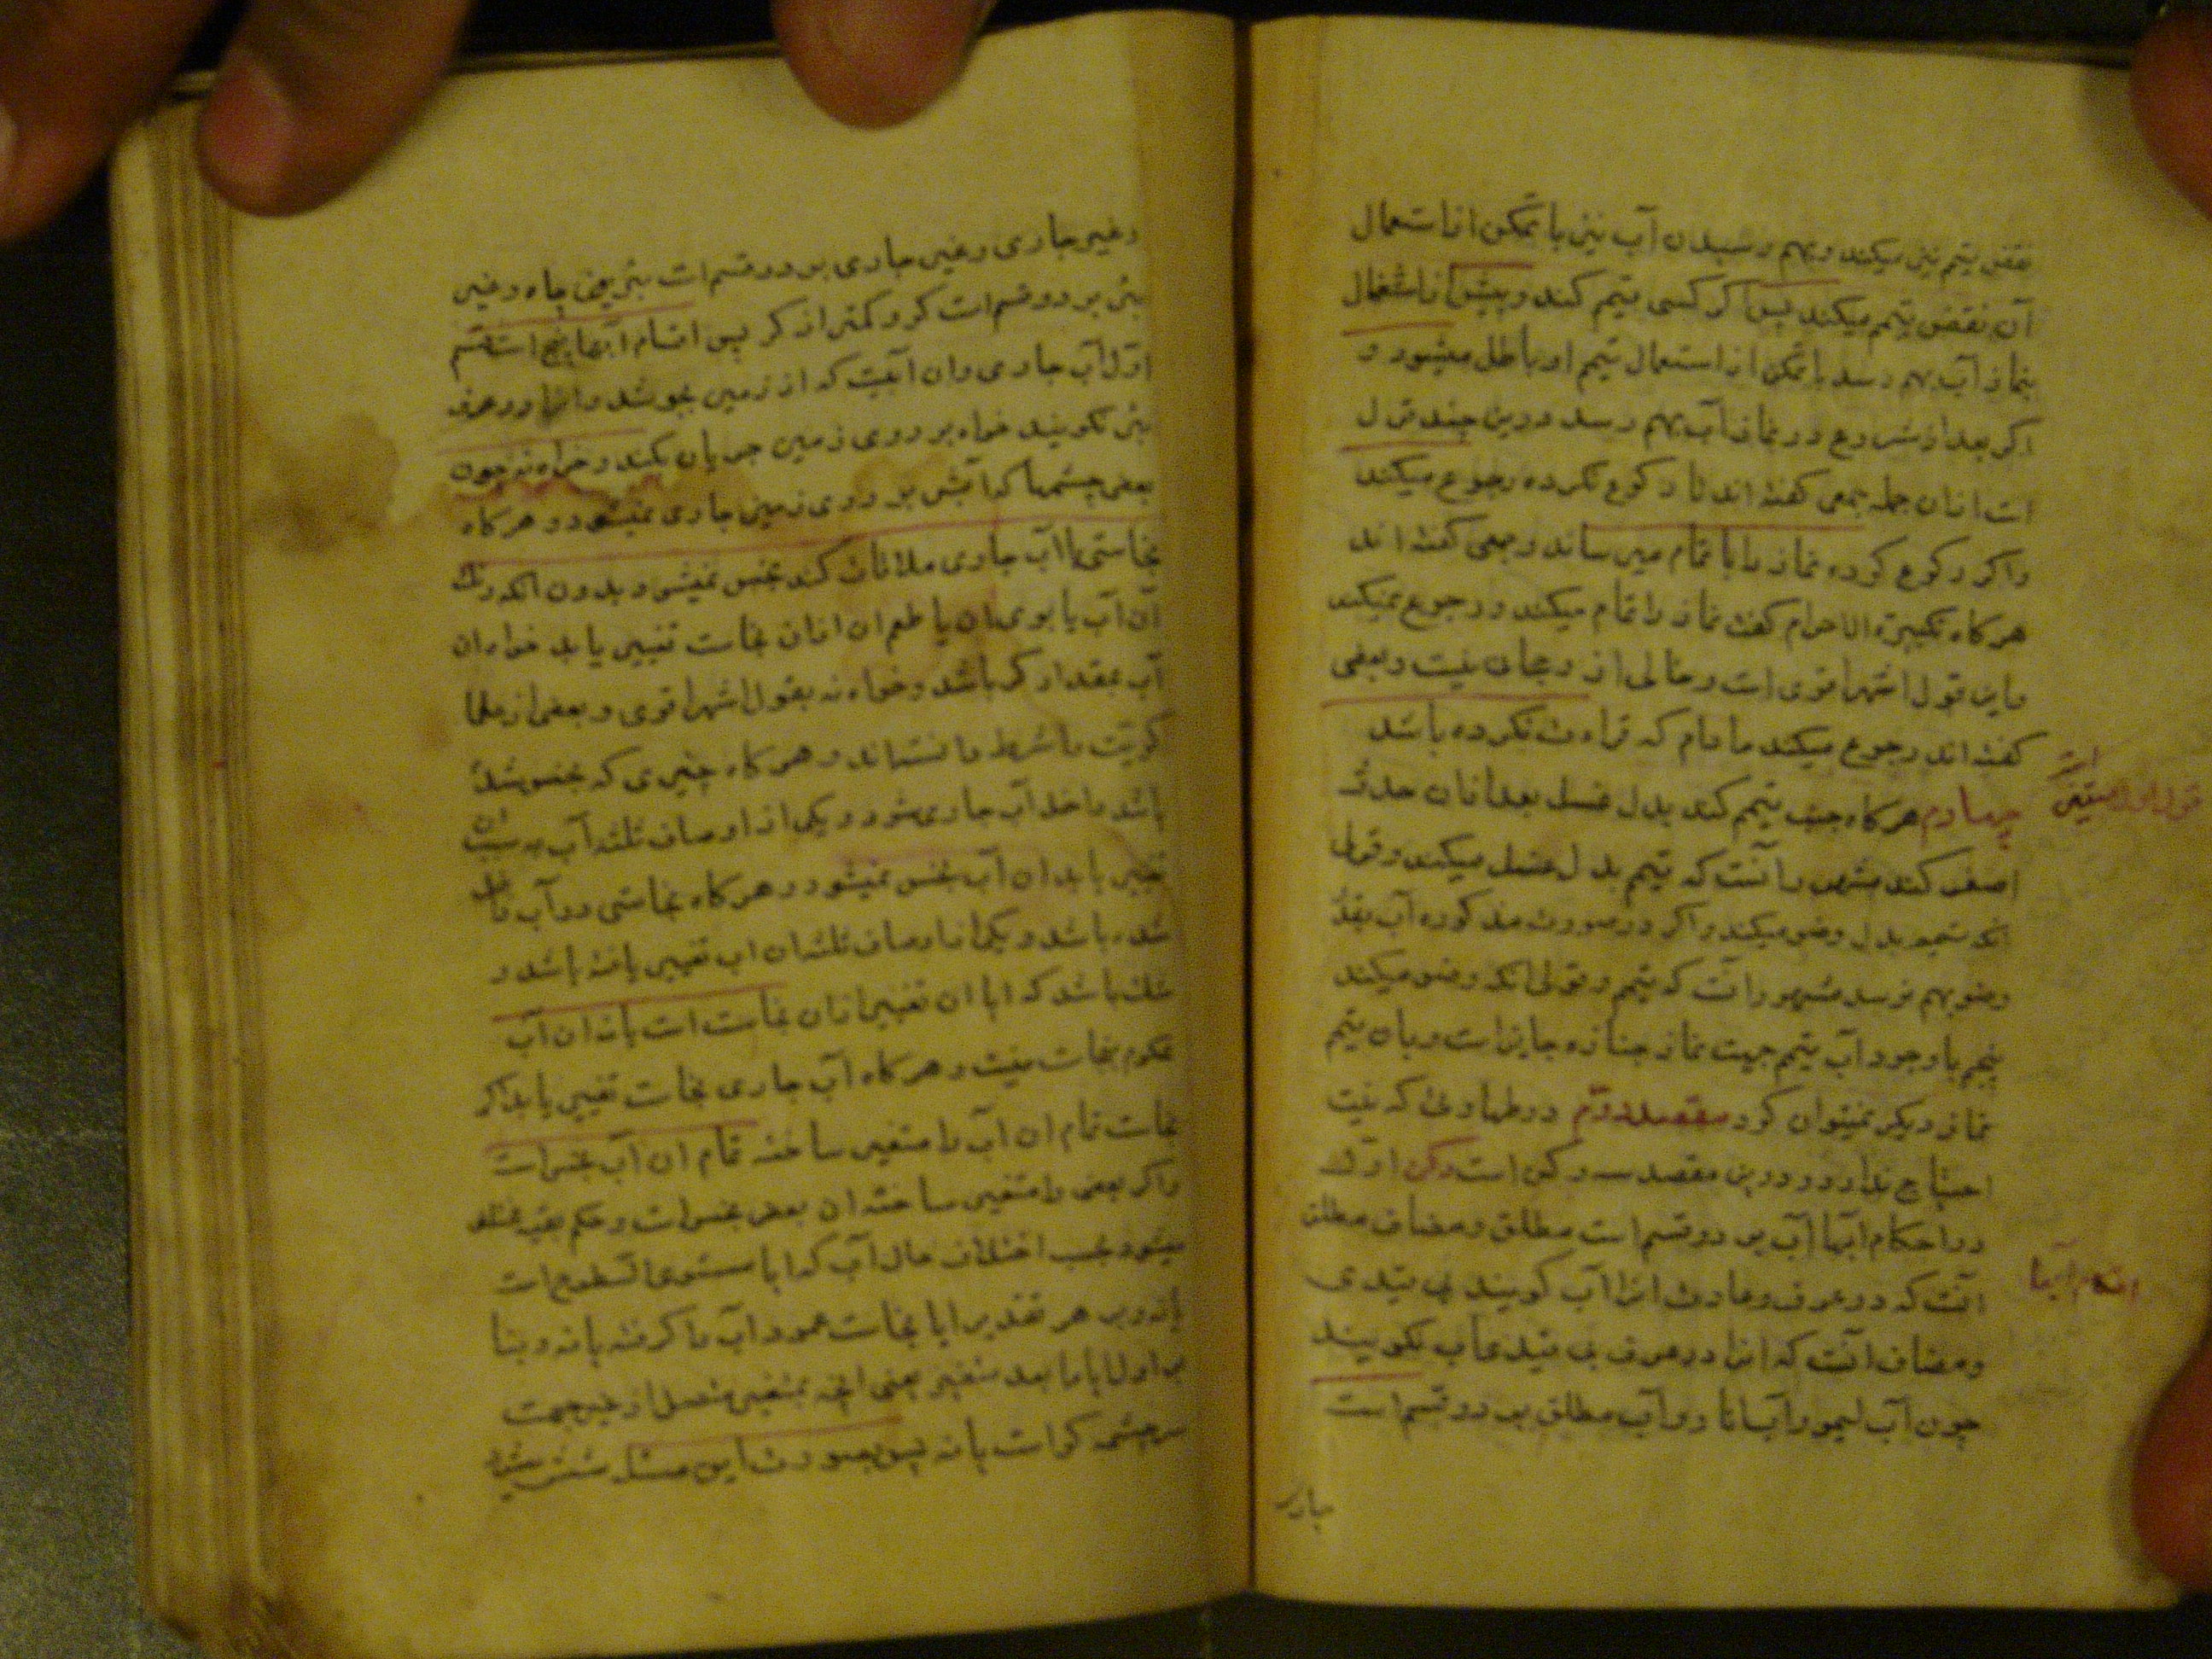 نقض تیمم نیز میکند و بهم رسیدن آب نیز با تمکن از استعمال
آن نقض تیمم میکند پس اگر کسی تیمم کند و پیش از اشتغال
بنماز آب بهم رسد با تمکن از استعمال تیمم او باطل میشود و
اکر بعد از شروع در نماز آب بهم رسد درین چند قول
است ازان جمله جمعی کفته اند تا رکوع نکرده رجوع میکند
واکر رکوع کرده نماز را با تمام میرساند و جمعی کفته اند
هرکاه تکبیرة الاحرام کفت نماز را تمام میکند و رجوع نمیکند
واین قول اشهر اقوی است و خالی از رجحان نیست و بعضی
کفته اند رجوع میکند مادام که قراءت نکرده باشد
چهارم هرکاه جنب تیمم کند بدل غسل بعد ازان حدث
اصغر کند مشهور آنست که تیمم بدل غسل میکند و قولی
آنکه تیمم بدل وضو میکند واکر در صورت مذکوره آب بقدر
وضو بهم رسد مشهور آنست که تیمم و قولی آنکه وضو میکند
پنجم با وجود آب تیمم جهت نماز جنازه جایز است و بآن تیمم
نماز دیکر نمیتوان کرد مقصد دوم در طهارتی که نیت
احتیاج ندارد و درین مقصد سه رکن است رکن اول
در احکام آبها آب بر دو قسم است مطلق و مضاف مطلق
آنست که در عرف و عادت انرا آب کویند بی قیدی
و مضاف آنست که انرا در عرف بی قیدی آب نکویند
چون آب لیمو و آب انار و آب مطلق بر دو قسم است
قول اول
است
اقسام آبها
جاری
و غیر جاری و غیر جاری بر دو قسم است بئر یعنی چاه و غیر
بئر بر دو قسم است کر و کمتر از کر پس اقسام آبها پنج است قسم
اول آب جاری وان آبیست که از زمین بجوشد وانرا در عرف
بئر نکویند خواه بر روی زمین جریان بکند و خواه نه چون
بعضی چشمها که آبش بر روی زمین جاری نمیشود و هرکاه
نجاستی با آب جاری ملاقات کند نجس نمیشود بدون آنکه رنک
آن آب یا بوی ان یا طعم ان ازان نجاست تغییر یابد خواه ان
آب بمقدار کر باشد و خواه نه بقول اشهر اقوی و بعضی از علما
کریت را شرط دانسته اند و هرکاه چیزی که نجس شده
باشد داخل آب جاری شود و یکی از اوصاف ثلثه آب به سبب ان
تغییر یابد ان آب نجس نمیشود و هرکاه نجاستی در آب داخل
شده باشد و یکی از اوصاف ثلثه ان آب تغییر یافته باشد و
شک باشد که ایا ان تغییر ازان نجاست است یا نه ان آب
محکوم بنجاست نیست و هرکاه آب جاری بنجاست تغییر یابد اکر
نجاست تمام ان آب را متغیر ساخته تمام ان آب نجس است
واکر بعضی را متغیر ساخته ان بعض نجس است و حکم بقیه مختلف
میشود بحسب اختلاف حال آب که ایا مستوی السطوح است
یا نه و بر هر تقدیر ایا نجاست عمود آب را کرفته یا نه و بنا
بر اول ایا ما بعد متغیر یعنی انچه بمتغیر متصل از غیر جهت
سرچشمه کر است یا نه پس صورت این مسئله شش میشود